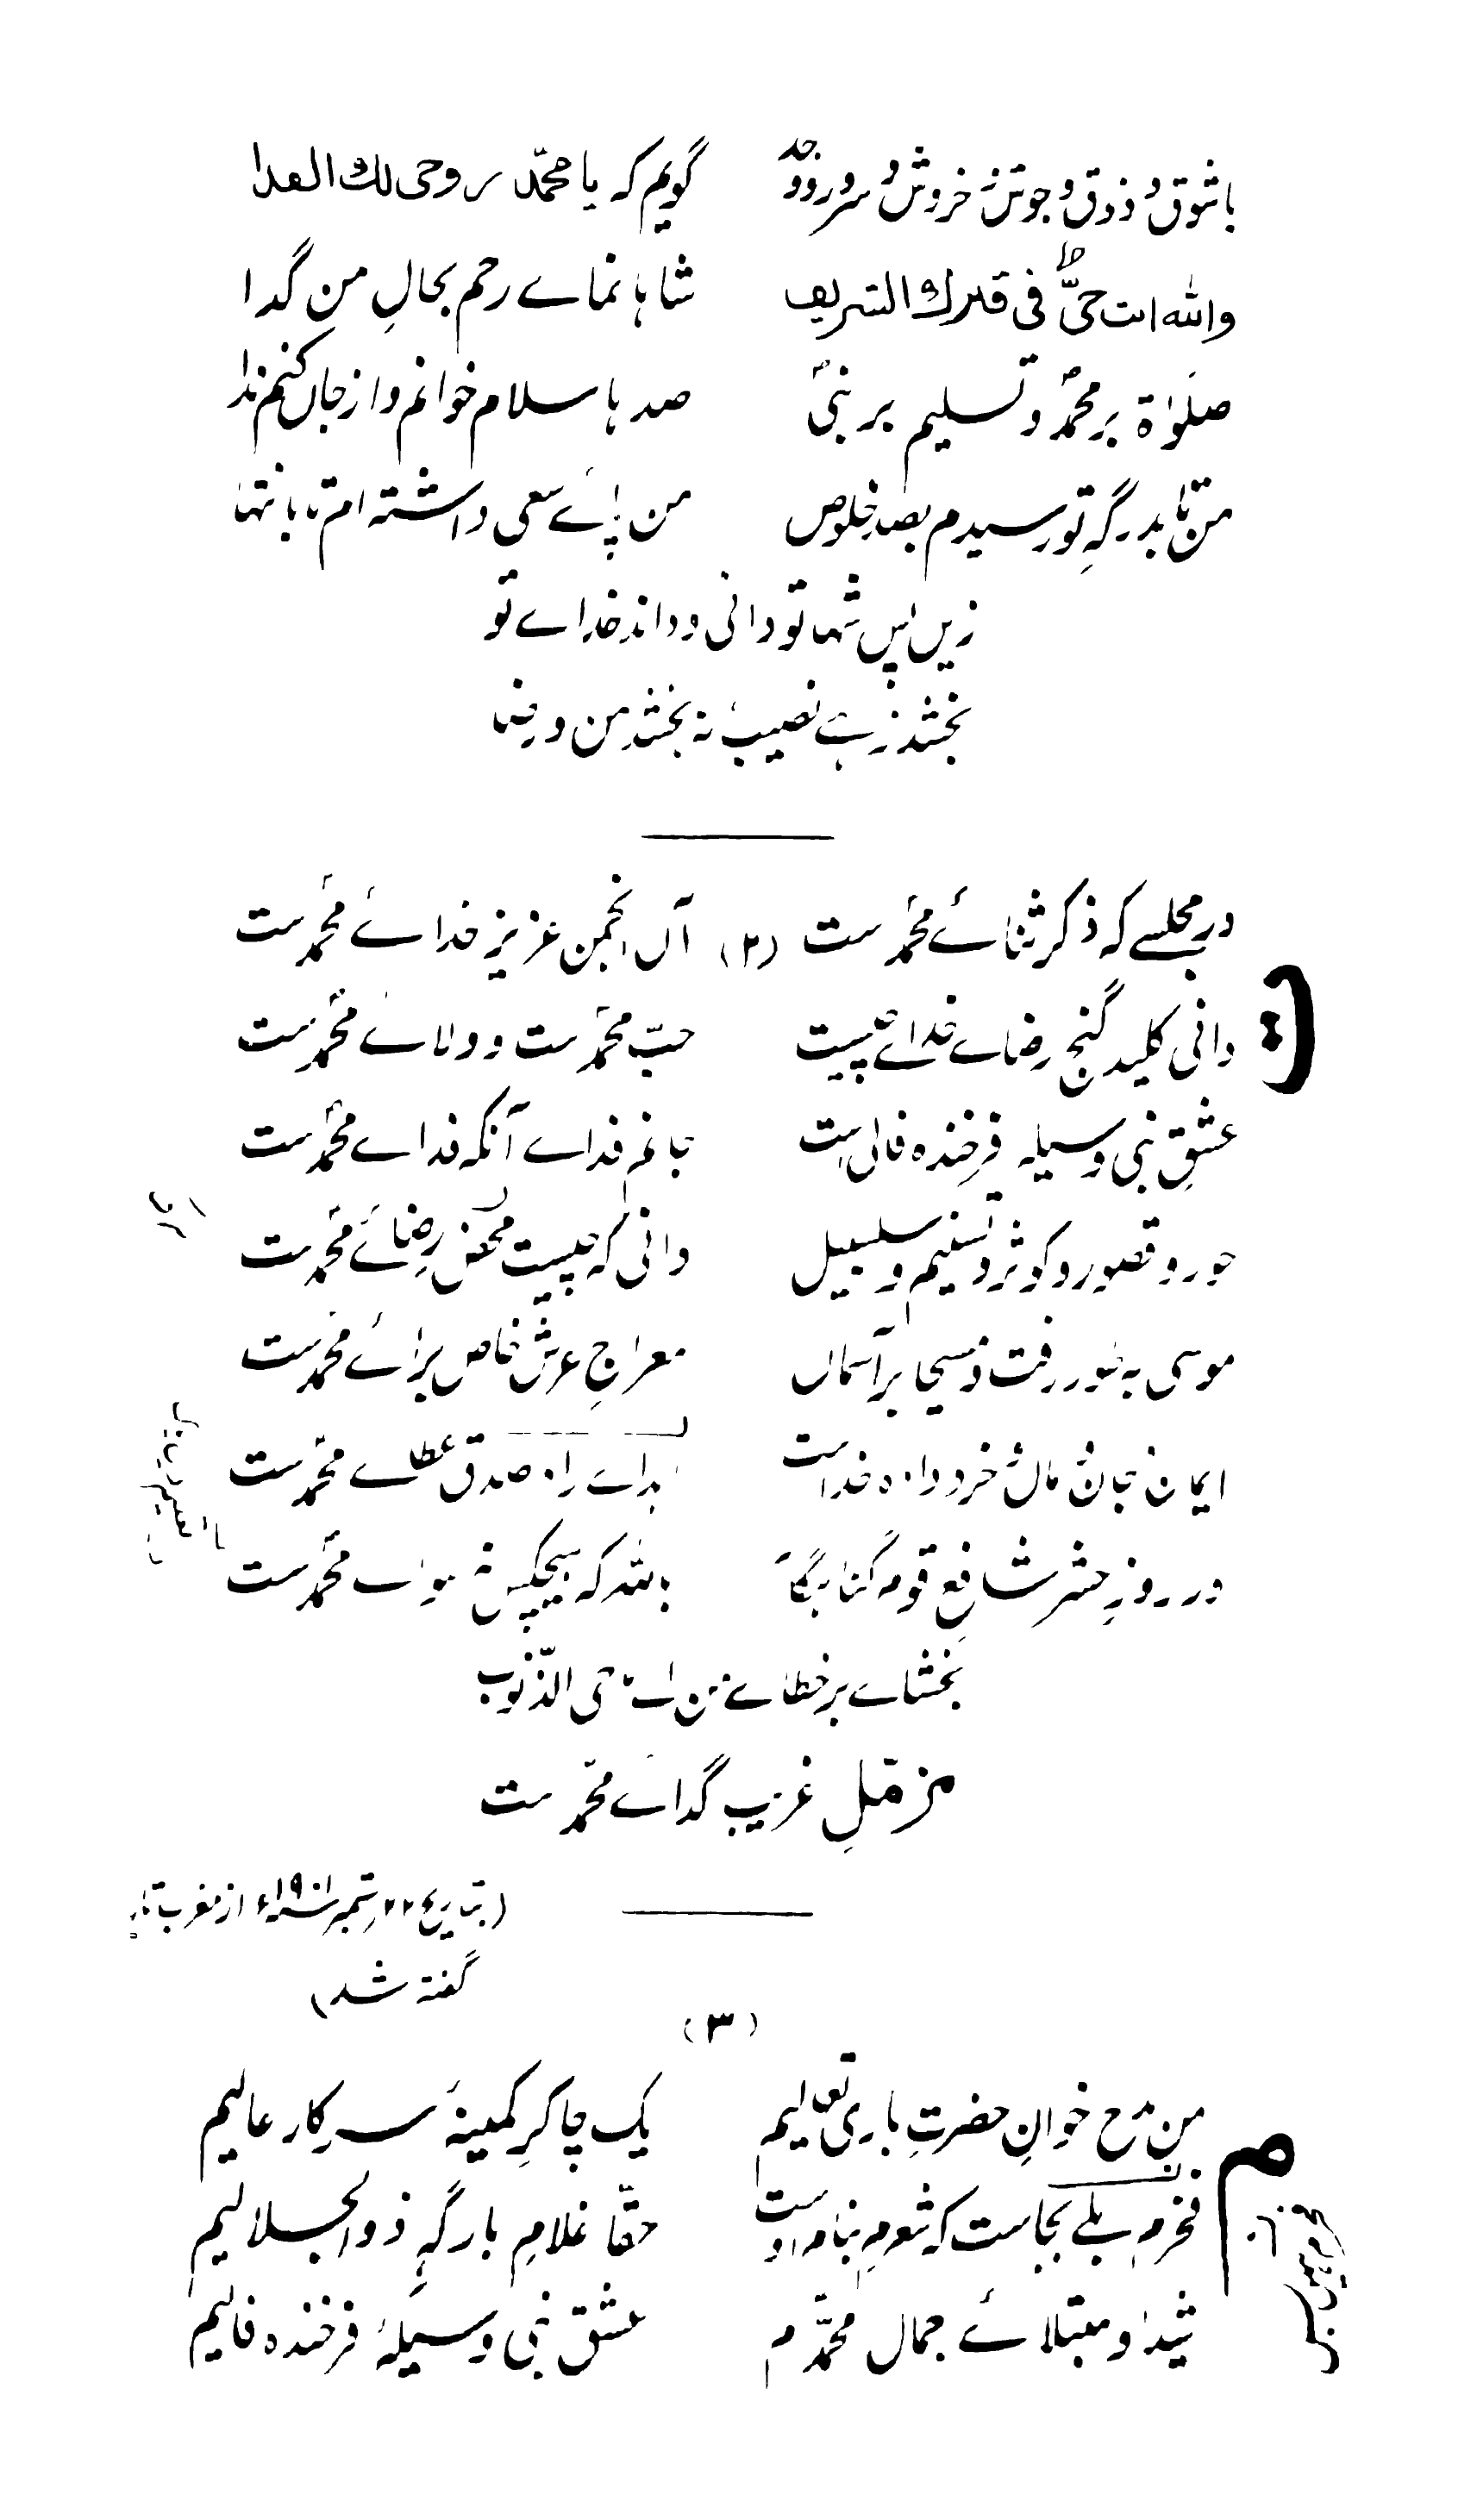 باشوق و ذوق و جوش و خروش و سرور و وجد گویم که یا محمد روحی لك الفدا
والله انت حیٌّ فی قبرك الشریف شاہا نماے رحم بحالِ من گدا
صلوٰۃ بر محمدؐ و تسلیم بر نبیؐ صدہا سلام خوانم و از جاں کنم ندا
من تا بدرگہِ تو رسیدم بصد خلوص من پاے سعی داشتہ ام تا بانتہا
زیں پس شہا تو دانی و داند خداے تو
بخشد زہے نصیب نہ بخشد من و رضا
در مجلسے کہ ذکر ثناۓ محمدؐست (۲) آں انجمن عزیز خداۓ محمدؐست
دانی کلید گنج رضاے خداے چیست حب محمدؐست و ولاۓ محمدؐست
عشقِ نبی وسیلہ فرخندہ فالی ست جانم فداے آنکہ فداے محمدؐست
حور و قصور و کوثر و تسنیم و سلسبیل دانی کہ چیست محض رضاۓ محمدؐست
موسی بہ طور رفت و مسیحا بر آسماں معراجِ عرش خاص براۓ محمدؐست
ایمان و جان و مال و خرد دادہ خداست براے راہ صدق عطاے محمدؐست
در روزِ حشر شافع قوم گناہگار باشد کہ ہیچکس نہ سواے محمدؐست
بخشاے بر خطاے من اے ماحی الذنوب
مزملِ غریب گداۓ محمدؐست
(بتاریخ ۲۲ ستمبر ۱۹ء از مغرب تا
گفتہ شد)
(۳)
من مدح خوانِ حضرتِ باری تعالیم یک چاکرِ کمینۂ سرکار عالیم
فخرم بلے بجاست کہ شعرم بنادرست حقا غلامِ بارگہِ ذوالجلالیم
شیدا و مبتلاۓ جمال محمدؐم عشق نبی وسیلۂ فرخندہ فالیم